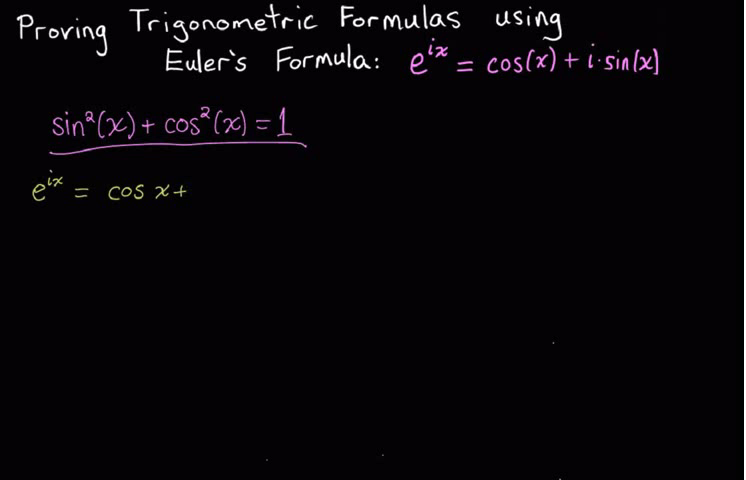 Proving Trigonometric Formulas using
Euler's Formula: e^{ix} = cos(x) + i·sin(x)
sin²(x) + cos²(x) = 1
e^{ix} = cos x +